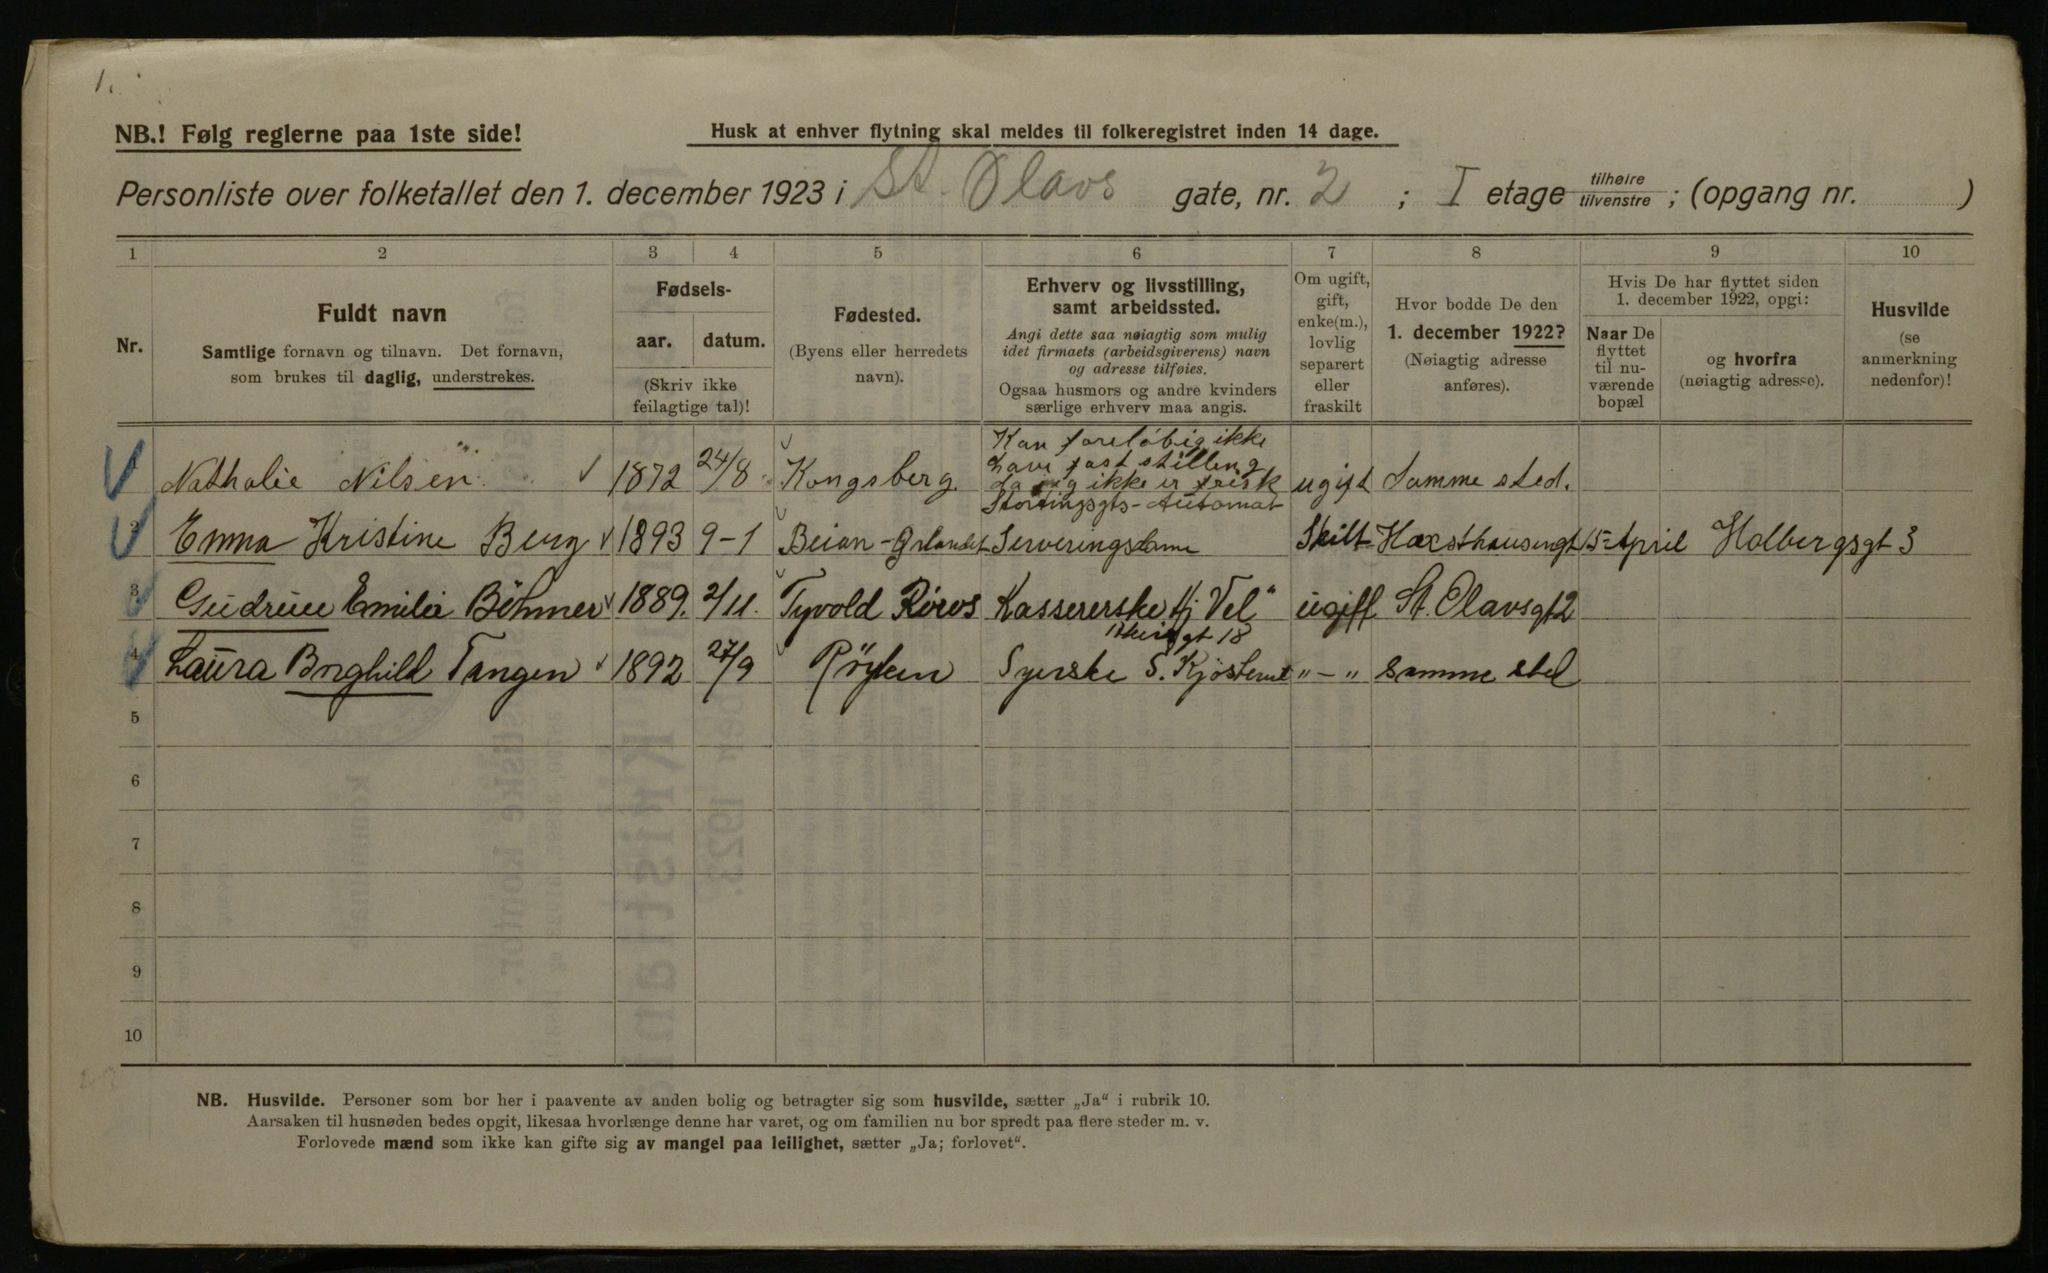 1.
NB.! Følg reglerne paa 1ste side!
Husk at enhver flytning skal meldes til folkeregistret inden 14 dage.
Personliste over folketallet den 1. december 1923 i St. Olavs gate, nr. 2 ; I etage tilhøire tilvenstre ; (opgang nr. )
1 2 3 4 5 6 7 8 9 10
Nr.
Fuldt navn
Samtlige fornavn og tilnavn. Det fornavn,
som brukes til daglig, understrekes.
Fødsels-
aar. datum.
(Skriv ikke
feilagtige tal)!
Fødested.
(Byens eller herredets
navn).
Erhverv og livsstilling,
samt arbeidssted.
Angi dette saa nøiagtig som mulig
idet firmaets (arbeidsgiverens) navn
og adresse tilføies.
Ogsaa husmors og andre kvinders
særlige erhverv maa angis.
Om ugift,
gift,
enke(m.),
lovlig
separert
eller
fraskilt
Hvor bodde De den
1. december 1922?
(Nøiagtig adresse
anføres).
Hvis De har flyttet siden
1. december 1922, opgi:
Naar De
flyttet
til nu-
værende
bopæl
og hvorfra
(nøiagtig adresse).
Husvilde
(se
anmerkning
nedenfor)!
Kan foreløbig ikke
have fast stilling
da jeg ikke er frisk
Nathalie Nilsen 1872 24/8 Kongsberg ugift Samme sted.
Stortingsgts-Automat
2 Emma Kristine Berg 1893 9-1 Beian-Ørlandet Serveringsdame Skilt Haxsthausengt 15 April Holbergsgt 3
3 Gudrun Emilie Böhmer 1889. 2/11. Tyvold Røros Kassererske Hj Vel" ugift St. Olavsgt 2
gt 18
4 Laura Borghild Tangen 1892 27/9 Röyken Syerske S. "-" samme sted
5
6
7
8
9
10
NB. Husvilde. Personer som bor her i paavente av anden bolig og betragter sig som husvilde, sætter „Ja" i rubrik 10.
Aarsaken til husnøden bedes opgit, likesaa hvorlænge denne har varet, og om familien nu bor spredt paa flere steder m. v.
Forlovede mænd som ikke kan gifte sig av mangel paa leilighet, sætter „Ja; forlovet".